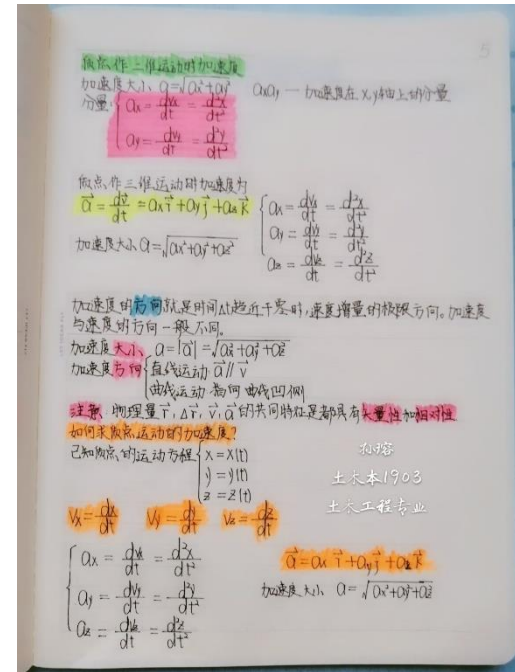 5
质点作二维运动时加速度
加速度大小 a=√(ax²+ay²) axay — 加速度在x,y轴上的分量
分量: { ax = dvx/dt = d²x/dt²
ay = dvy/dt = d²y/dt²
质点作三维运动时加速度为
a⃗ = dv⃗/dt = axi⃗+ayj⃗+azk⃗
{ ax = dvx/dt = d²x/dt²
ay = dvy/dt = d²y/dt²
az = dvz/dt = d²z/dt²
加速度大小 a=√(ax²+ay²+az²)
加速度的方向就是时间Δt趋近于零时,速度增量的极限方向。加速度
与速度的方向一般不同。
加速度大小 a=|a⃗|=√(ax²+ay²+az²)
加速度方向 { 直线运动 a⃗∥v⃗
曲线运动 指向曲线凹侧
注意: 物理量r⃗,Δr⃗,v⃗,a⃗的共同特征是都具有矢量性和相对性
如何求质点运动的加速度?
已知质点的运动方程 { x=x(t)
y=y(t)
z=z(t)
孙瑢
土木本1903
土木工程专业
vx=dx/dt vy=dy/dt vz=dz/dt
{ ax = dvx/dt = d²x/dt²
ay = dvy/dt = d²y/dt²
az = dvz/dt = d²z/dt²
a⃗=axi⃗+ayj⃗+azk⃗
加速度大小 a=√(ax²+ay²+az²)